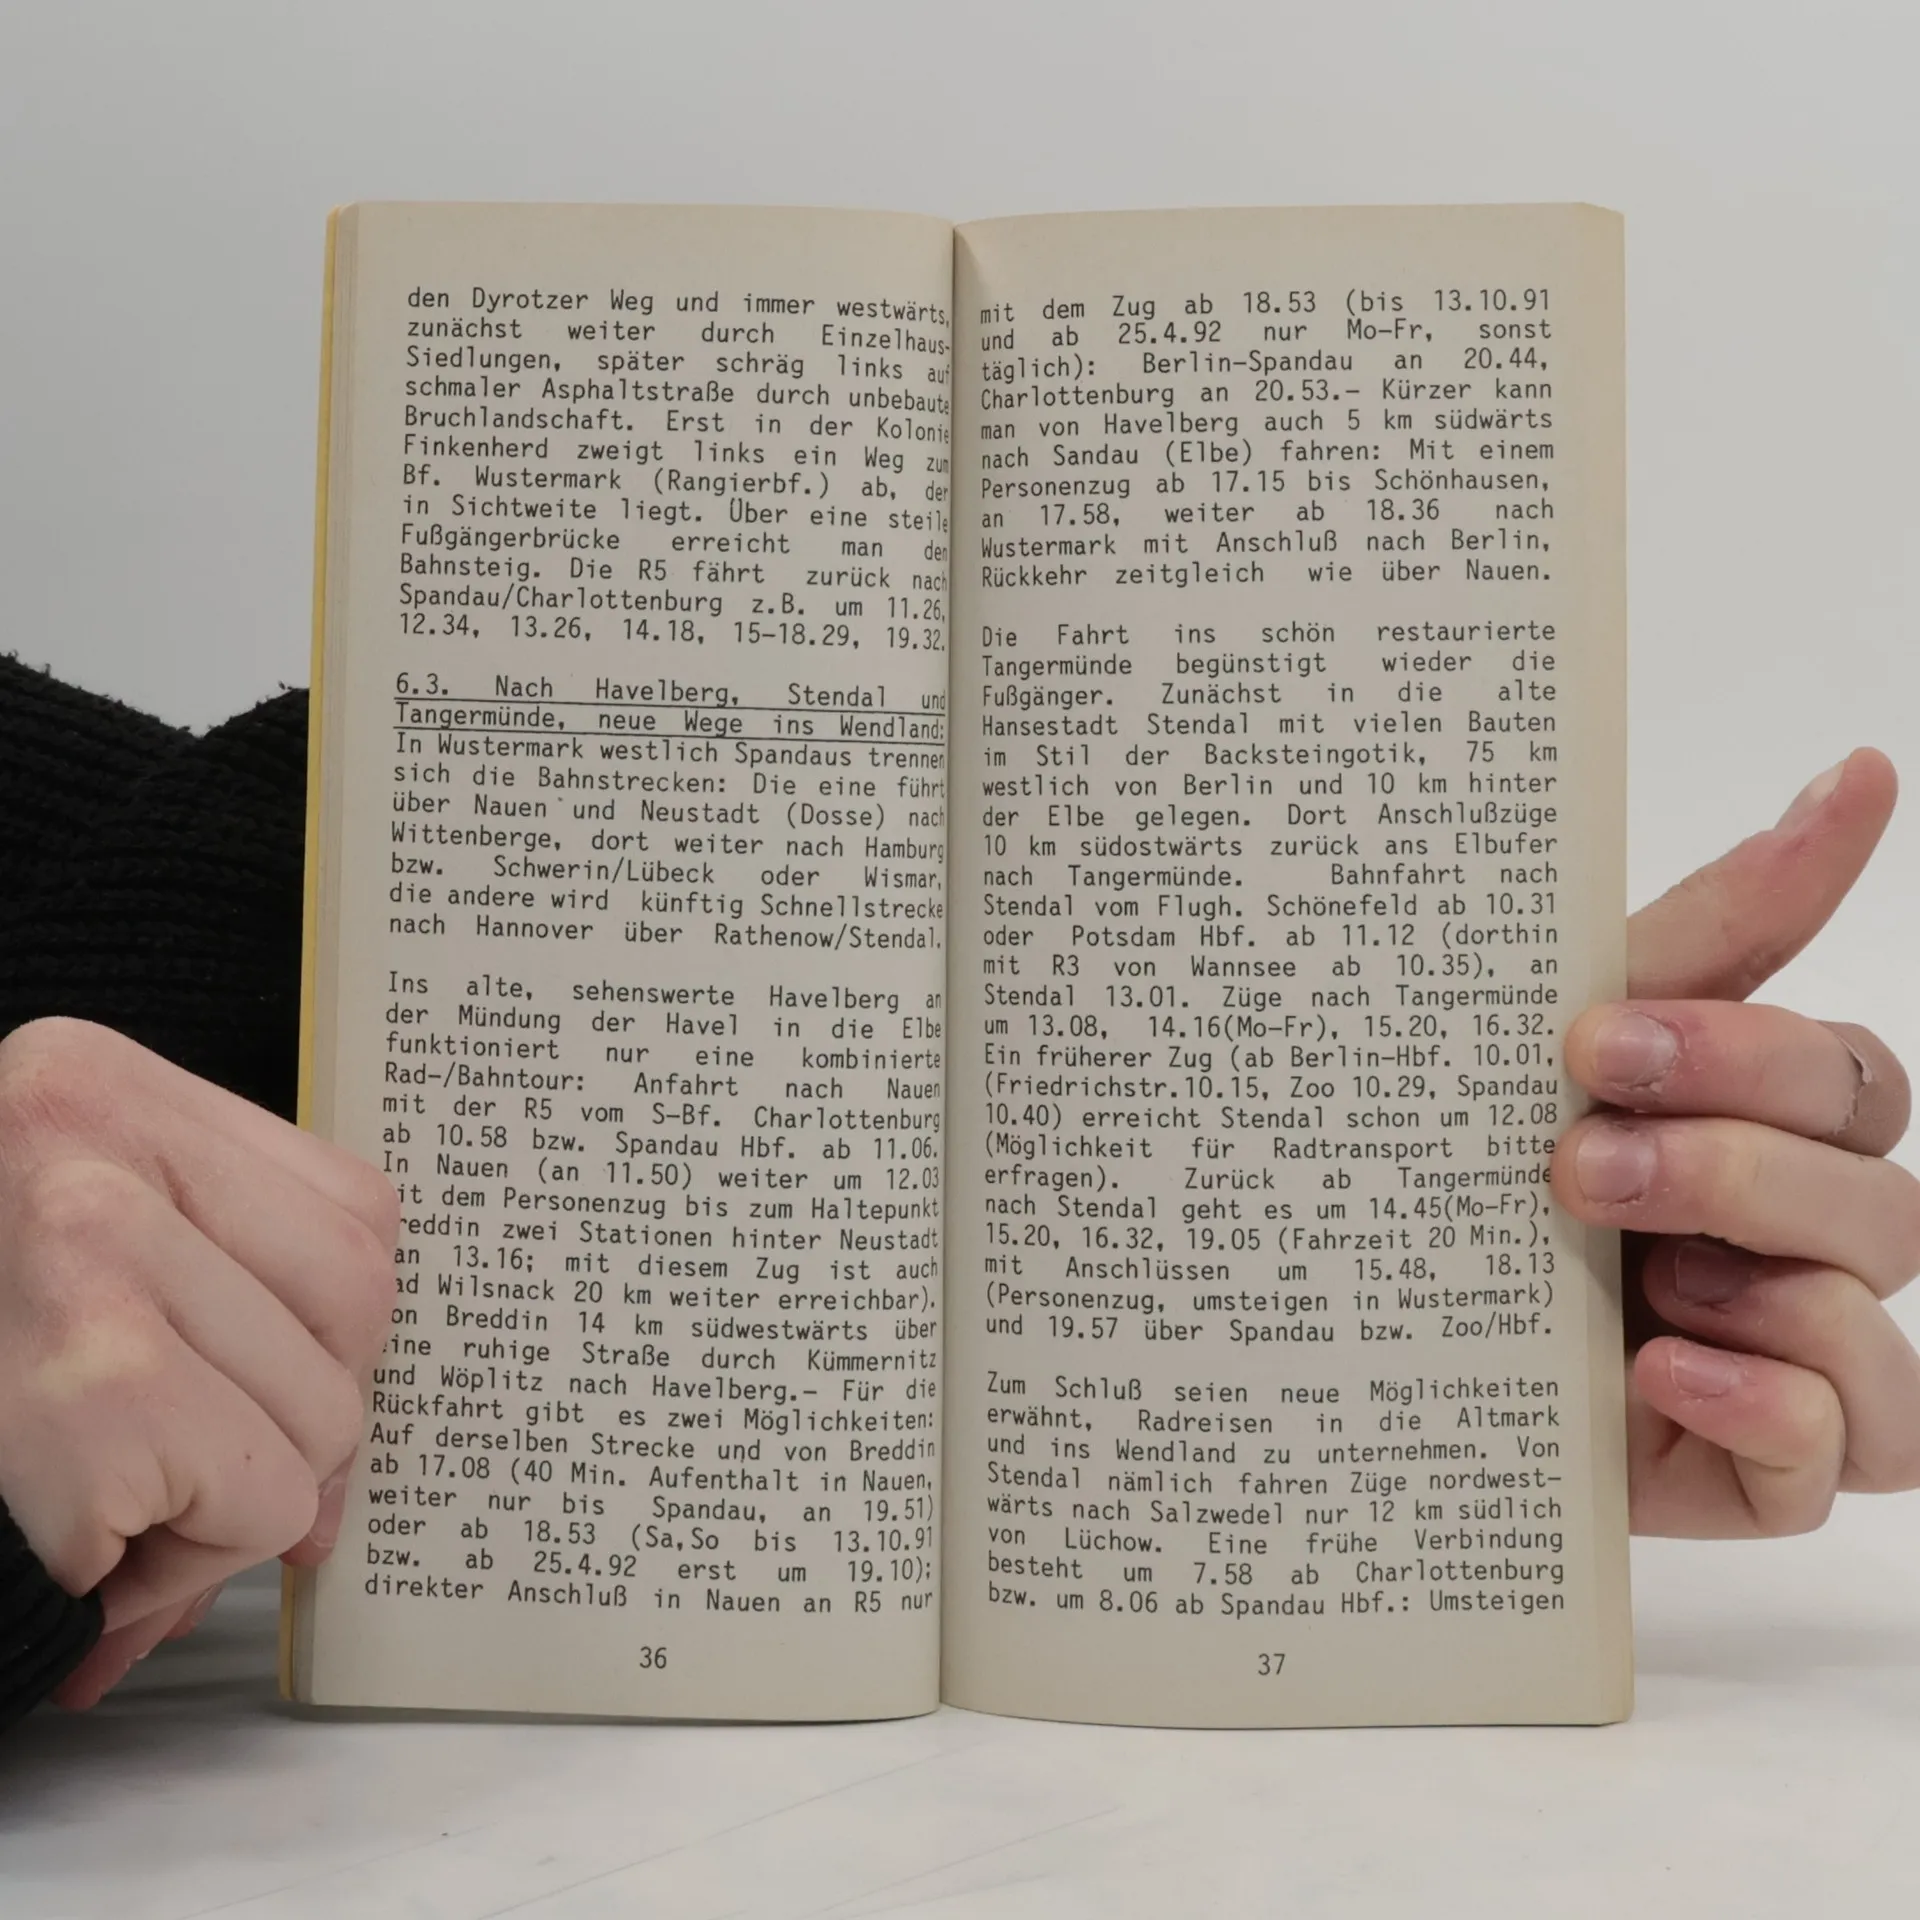 den Dyrotzer Weg und immer westwärts,
zunächst weiter durch Einzelhaus-
Siedlungen, später schräg links auf
schmaler Asphaltstraße durch unbebaute
Bruchlandschaft. Erst in der Kolonie
Finkenherd zweigt links ein Weg zum
Bf. Wustermark (Rangierbf.) ab, der
in Sichtweite liegt. Über eine steile
Fußgängerbrücke erreicht man den
Bahnsteig. Die R5 fährt zurück nach
Spandau/Charlottenburg z.B. um 11.26,
12.34, 13.26, 14.18, 15-18.29, 19.32.
6.3. Nach Havelberg, Stendal und
Tangermünde, neue Wege ins Wendland:
In Wustermark westlich Spandaus trennen
sich die Bahnstrecken: Die eine führt
über Nauen und Neustadt (Dosse) nach
Wittenberge, dort weiter nach Hamburg
bzw. Schwerin/Lübeck oder Wismar,
die andere wird künftig Schnellstrecke
nach Hannover über Rathenow/Stendal.
Ins alte, sehenswerte Havelberg an
der Mündung der Havel in die Elbe
funktioniert nur eine kombinierte
Rad-/Bahntour: Anfahrt nach Nauen
mit der R5 vom S-Bf. Charlottenburg
ab 10.58 bzw. Spandau Hbf. ab 11.06.
In Nauen (an 11.50) weiter um 12.03
it dem Personenzug bis zum Haltepunkt
reddin zwei Stationen hinter Neustadt
an 13.16; mit diesem Zug ist auch
ad Wilsnack 20 km weiter erreichbar).
on Breddin 14 km südwestwärts über
ine ruhige Straße durch Kümmernitz
und Wöplitz nach Havelberg.- Für die
Rückfahrt gibt es zwei Möglichkeiten:
Auf derselben Strecke und von Breddin
ab 17.08 (40 Min. Aufenthalt in Nauen,
weiter nur bis Spandau, an 19.51)
oder ab 18.53 (Sa,So bis 13.10.91
bzw. ab 25.4.92 erst um 19.10);
direkter Anschluß in Nauen an R5 nur
36
mit dem Zug ab 18.53 (bis 13.10.91
und ab 25.4.92 nur Mo-Fr, sonst
täglich): Berlin-Spandau an 20.44,
Charlottenburg an 20.53.- Kürzer kann
man von Havelberg auch 5 km südwärts
nach Sandau (Elbe) fahren: Mit einem
Personenzug ab 17.15 bis Schönhausen,
an 17.58, weiter ab 18.36 nach
Wustermark mit Anschluß nach Berlin,
Rückkehr zeitgleich wie über Nauen.
Die Fahrt ins schön restaurierte
Tangermünde begünstigt wieder die
Fußgänger. Zunächst in die alte
Hansestadt Stendal mit vielen Bauten
im Stil der Backsteingotik, 75 km
westlich von Berlin und 10 km hinter
der Elbe gelegen. Dort Anschlußzüge
10 km südostwärts zurück ans Elbufer
nach Tangermünde. Bahnfahrt nach
Stendal vom Flugh. Schönefeld ab 10.31
oder Potsdam Hbf. ab 11.12 (dorthin
mit R3 von Wannsee ab 10.35), an
Stendal 13.01. Züge nach Tangermünde
um 13.08, 14.16(Mo-Fr), 15.20, 16.32.
Ein früherer Zug (ab Berlin-Hbf. 10.01,
(Friedrichstr.10.15, Zoo 10.29, Spandau
10.40) erreicht Stendal schon um 12.08
(Möglichkeit für Radtransport bitte
erfragen). Zurück ab Tangermünde
nach Stendal geht es um 14.45(Mo-Fr),
15.20, 16.32, 19.05 (Fahrzeit 20 Min.),
mit Anschlüssen um 15.48, 18.13
(Personenzug, umsteigen in Wustermark)
und 19.57 über Spandau bzw. Zoo/Hbf.
Zum Schluß seien neue Möglichkeiten
erwähnt, Radreisen in die Altmark
und ins Wendland zu unternehmen. Von
Stendal nämlich fahren Züge nordwest-
wärts nach Salzwedel nur 12 km südlich
von Lüchow. Eine frühe Verbindung
besteht um 7.58 ab Charlottenburg
bzw. um 8.06 ab Spandau Hbf.: Umsteigen
37